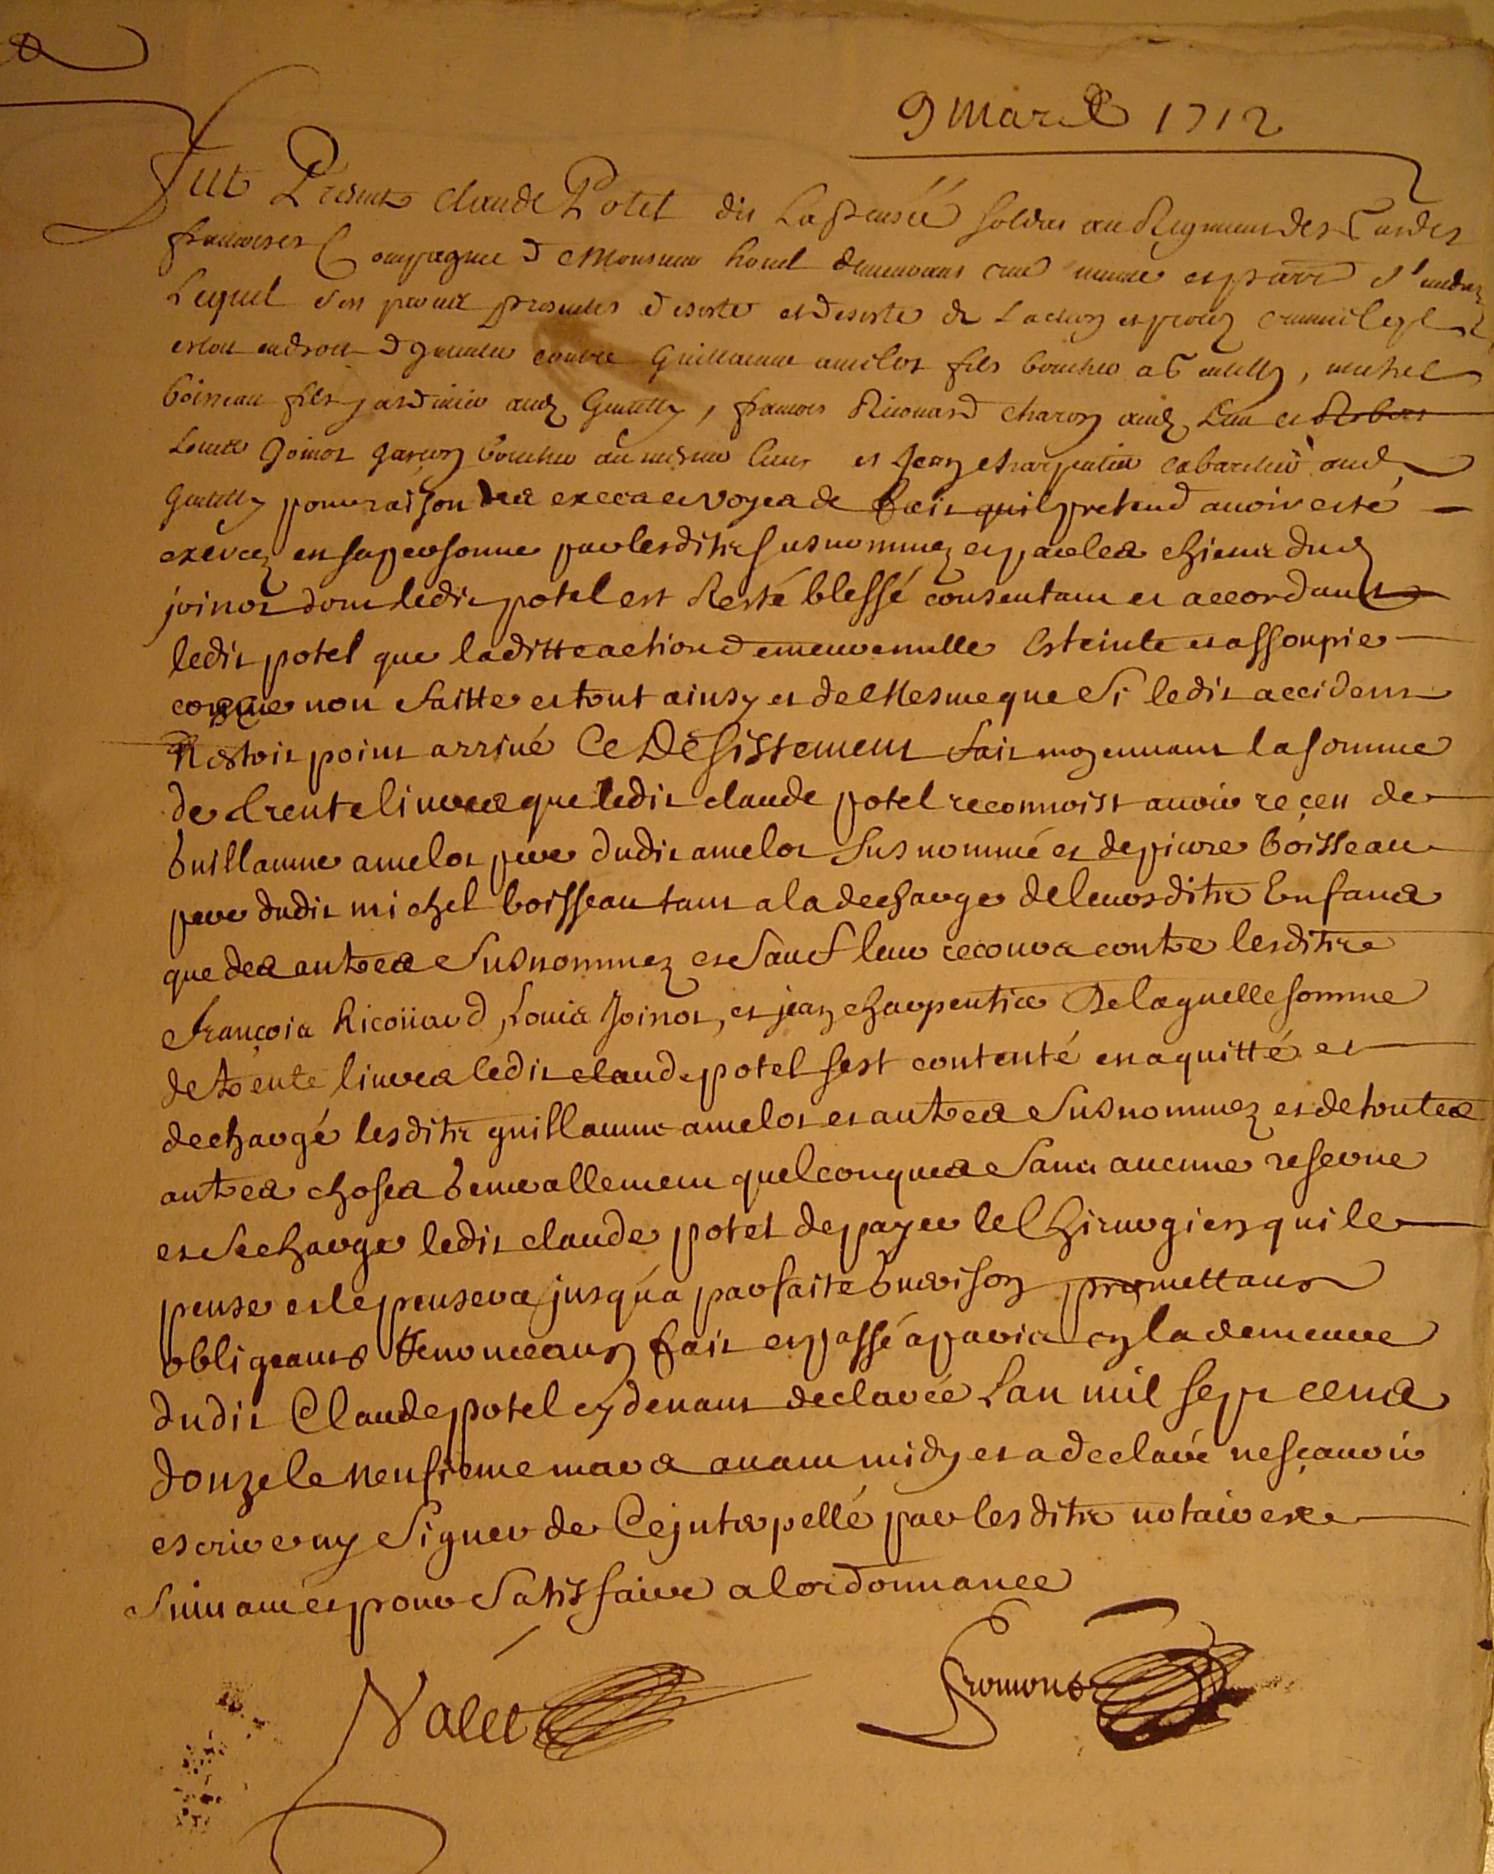 9 Mars 1712
Fut Present Claude Potel dit Lapensée soldat au Regiment des Gardes
francoises Compagnie de Monsieur demeurant rue et parr St andré
Lequel s'est par ces presentes desisté et desiste de Laction et proces criminel quil
estoit en droit dintenter contre Guillaume amelot fils boucher a Gentilly, michel
boisseau fils jardinier aud Gentilly, francois Ricouard charon aud Lieu et Robert
Louis Joinot garçon boucher au mesme lieu et Jean charpentier cabaretier aud
Gentilly pour raison des exces et voyes de fait quil pretend avoir esté
exercez en sa personne par lesdits susnommez et par les chiens dud
joinot dont ledit potel est Resté blessé consentant et accordant
ledit potel que laditte action demeure nulle Esteinte et assoupie
comme non faitte et tout ainsy et de Mesme que si ledit accident
Nestoit point arrivé Ce Desistement fait moyennant la somme
de trente livres que ledit claude potel reconnoist avoir reçeu de
Guillaume amelot pere dudit amelot susnommé et de pierre boisseau
pere dudit michel boisseau tant a la decharge de leursdits Enfans
que des autres susnommez et sauf leur recours contre lesdits
François Ricoüard, Louis Joinot, et jean charpentier De laquelle somme
de trente livres ledit claude potel sest contenté en a quitté et
dechargé lesdits guillaume amelot et autres susnommez et de toutes
autres choses Generallement quelconques sans aucune reserve
et se charge ledit claude potel de payer le Chirurgien qui le
pense et le pensera jusqu'a parfaite Guerison promettant
obligeant Renonceant fait et passé a paris en la demeure
dudit Claude potel cy devant declarée Lan mil sept cens
douze le neufieme mars avant midy et a declaré ne sçavoir
escrire ny signer de Ce interpellé par lesdits notaires
suivant et pour satisfaire a lordonnance
Valet
Fromont